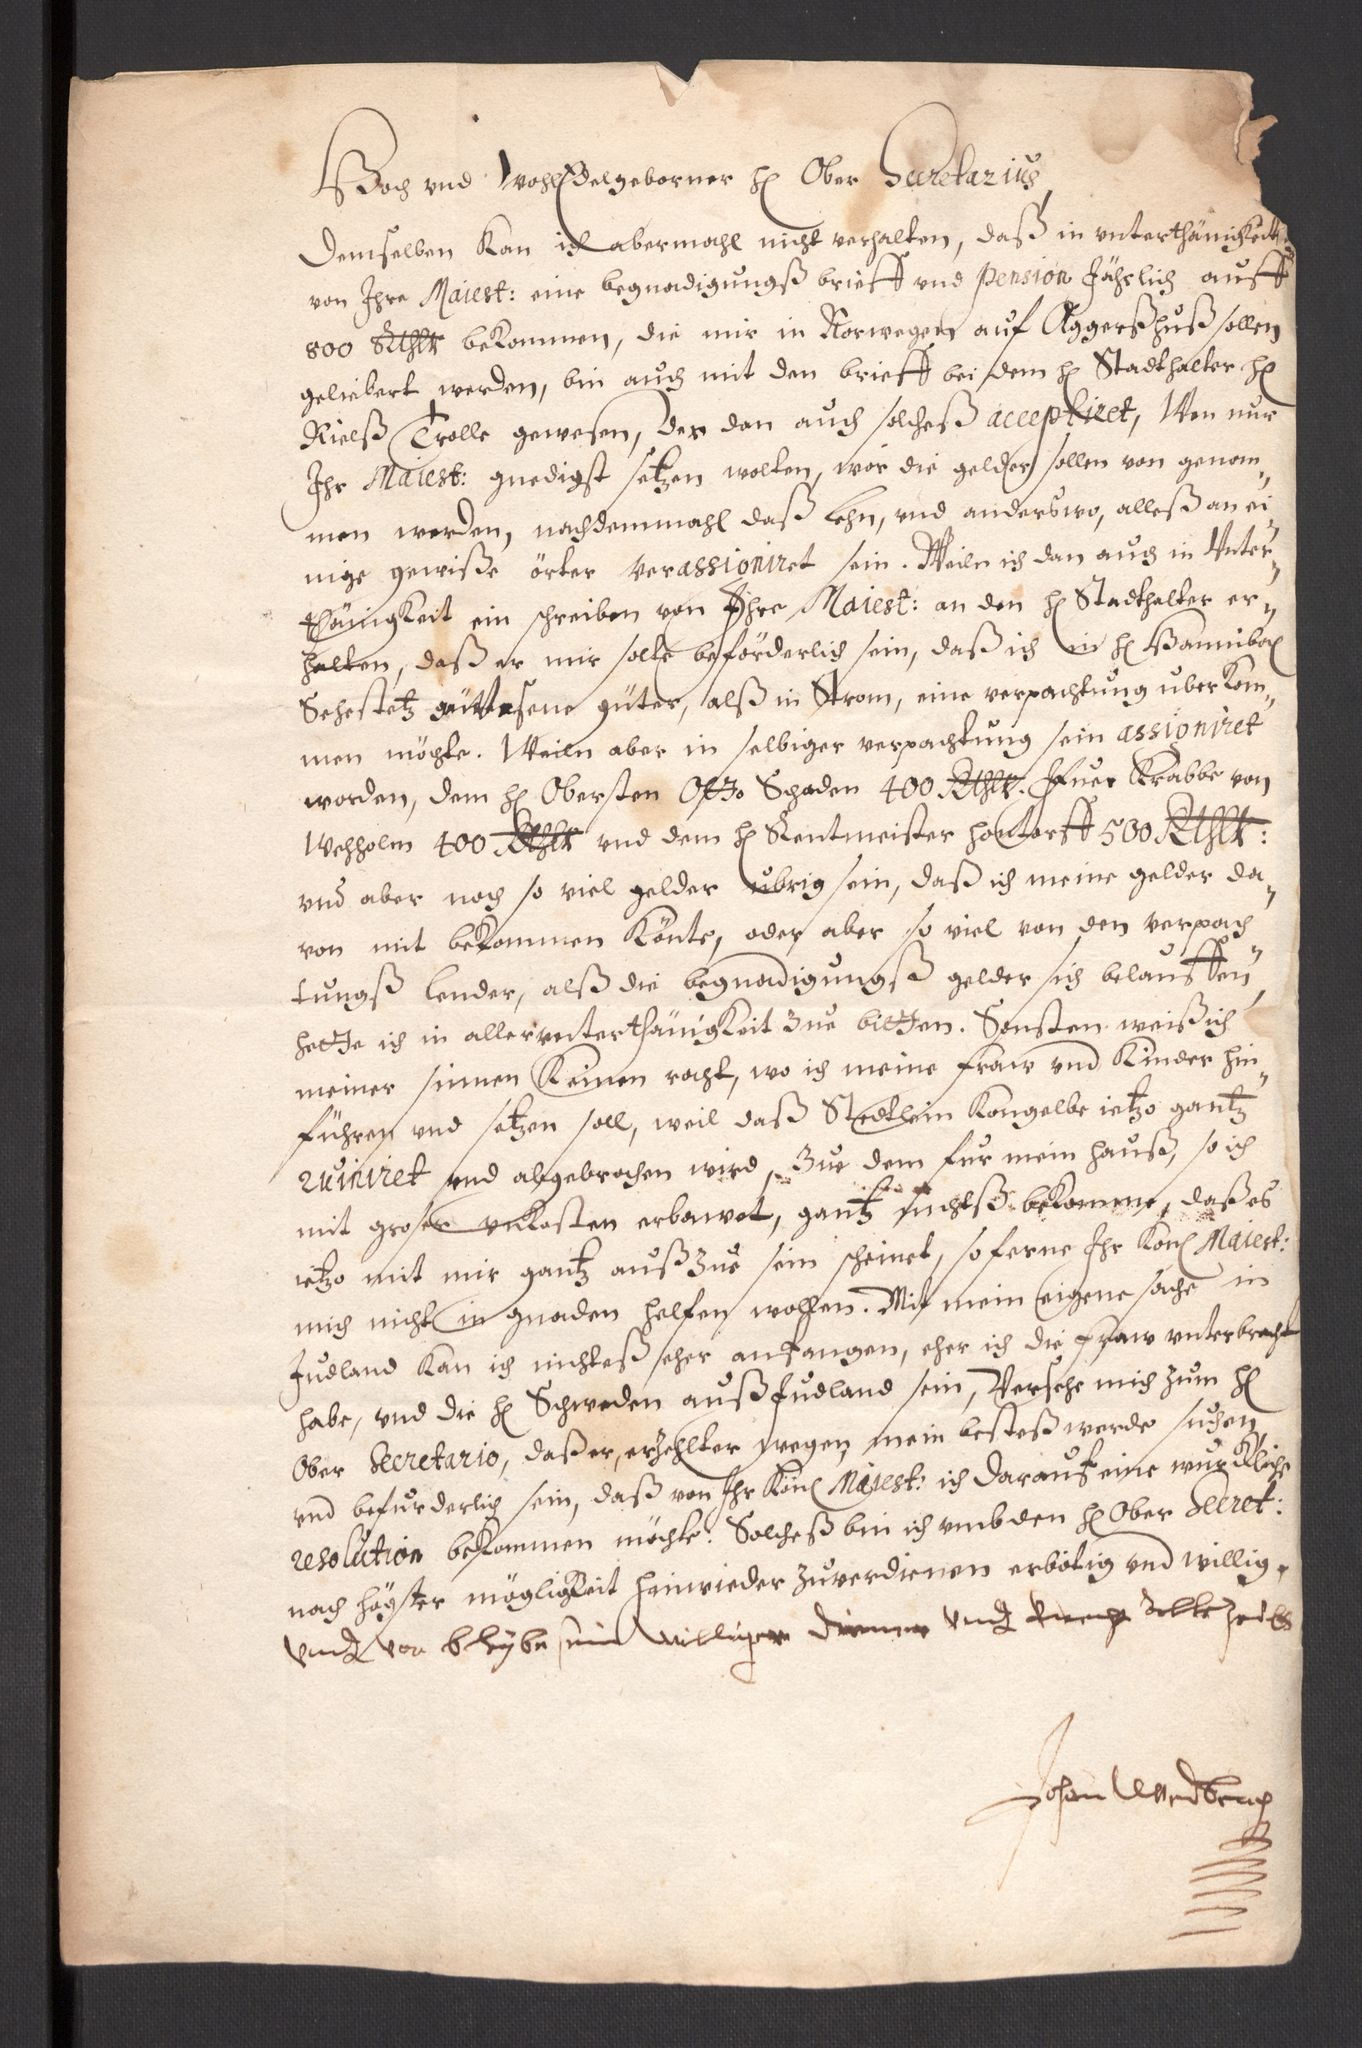 Hoch und WohlEdelgeborner H. Ober Secretarius,
Demselben kan ich abermahl nicht verhalten, daß in unterthänigkeit
von Ihre Maiest: eine begnadigungß brieff und pension Jährlich auff
800 Rthlr bekommen, die mir in Norwegen auf Aggerßhuß sollen
geliebert werden, bin auch mit den brieff bei dem H. Stadthalter H.
Nielß Trolle gewesen, Der dan auch solcheß acceptiret, Wen nur
Ihr Maiest: gnedigst setzen wolten, wor die gelder sollen von genom„
men werden, nachdemmahl daß Lehn, und anderswo, alleß an ei„
nige gewiße örter verassioniret sein. Weiln ich dan auch in Unter„
thänigkeit ein schreiben von Ihre Maiest: an den H. Stadthalter er„
halten, daß er mir solte beförderlich sein, daß ich in H. Hannibal
Sehestetz gewesene güter, alß in Strom, eine verpachtung uberkom„
men möchte. Weiln aber in selbiger verpachtung sein assioniret
worden, dem H. Obersten Otto Schaden 400 Rthlr. Ifuer Krabbe von
Wehholm 400 Rthlr und dem H. Rentmeister Hontorff 500 Rthlr:
und aber noch so viel gelder ubrig sein, daß ich meine gelder da„
von mit bekommen könte, oder aber so viel von den verpach„
tungß lender, alß die begnadigungß gelder sich belauffen,
hette ich in allerunterthänigkeit zue bitten. Sonsten weiß ich
meiner sinnen keinen raht, wo ich meine fraw und Kinder hin„
führen und setzen soll, weil daß Stedtlein Kongelbe ietzo gantz
ruiniret und abgebrochen wird, Zue dem fur mein hauß, so ich
mit groser unkosten erbawet, gantz nichtß bekomme, daß es
ietzo mit mir gantz auß zue sein scheinet, so ferne Ihr Kön. Maiest:
mich nicht in gnaden helfen wollen. Mit mein eigene sache in
Judland kan ich nichteß eher anfangen, eher ich die fraw unterbracht
habe, und die H. Schweden auß Judland sein, Versehe mich zum H.
Ober Secretario, daß er, erzehlter wegen, mein besteß werde suchen,
und befurderlich sein, daß von Ihr Kön. Maiest: ich darauf eine wurckliche
resolution bekommen möchte. Solcheß bin ich umb den H. Ober Secret:
nach högster mögligkeit hinwieder zuverdienen erbötig und willig.
Undt vor bleybe sein williger diener undt alle zeidt
Johan